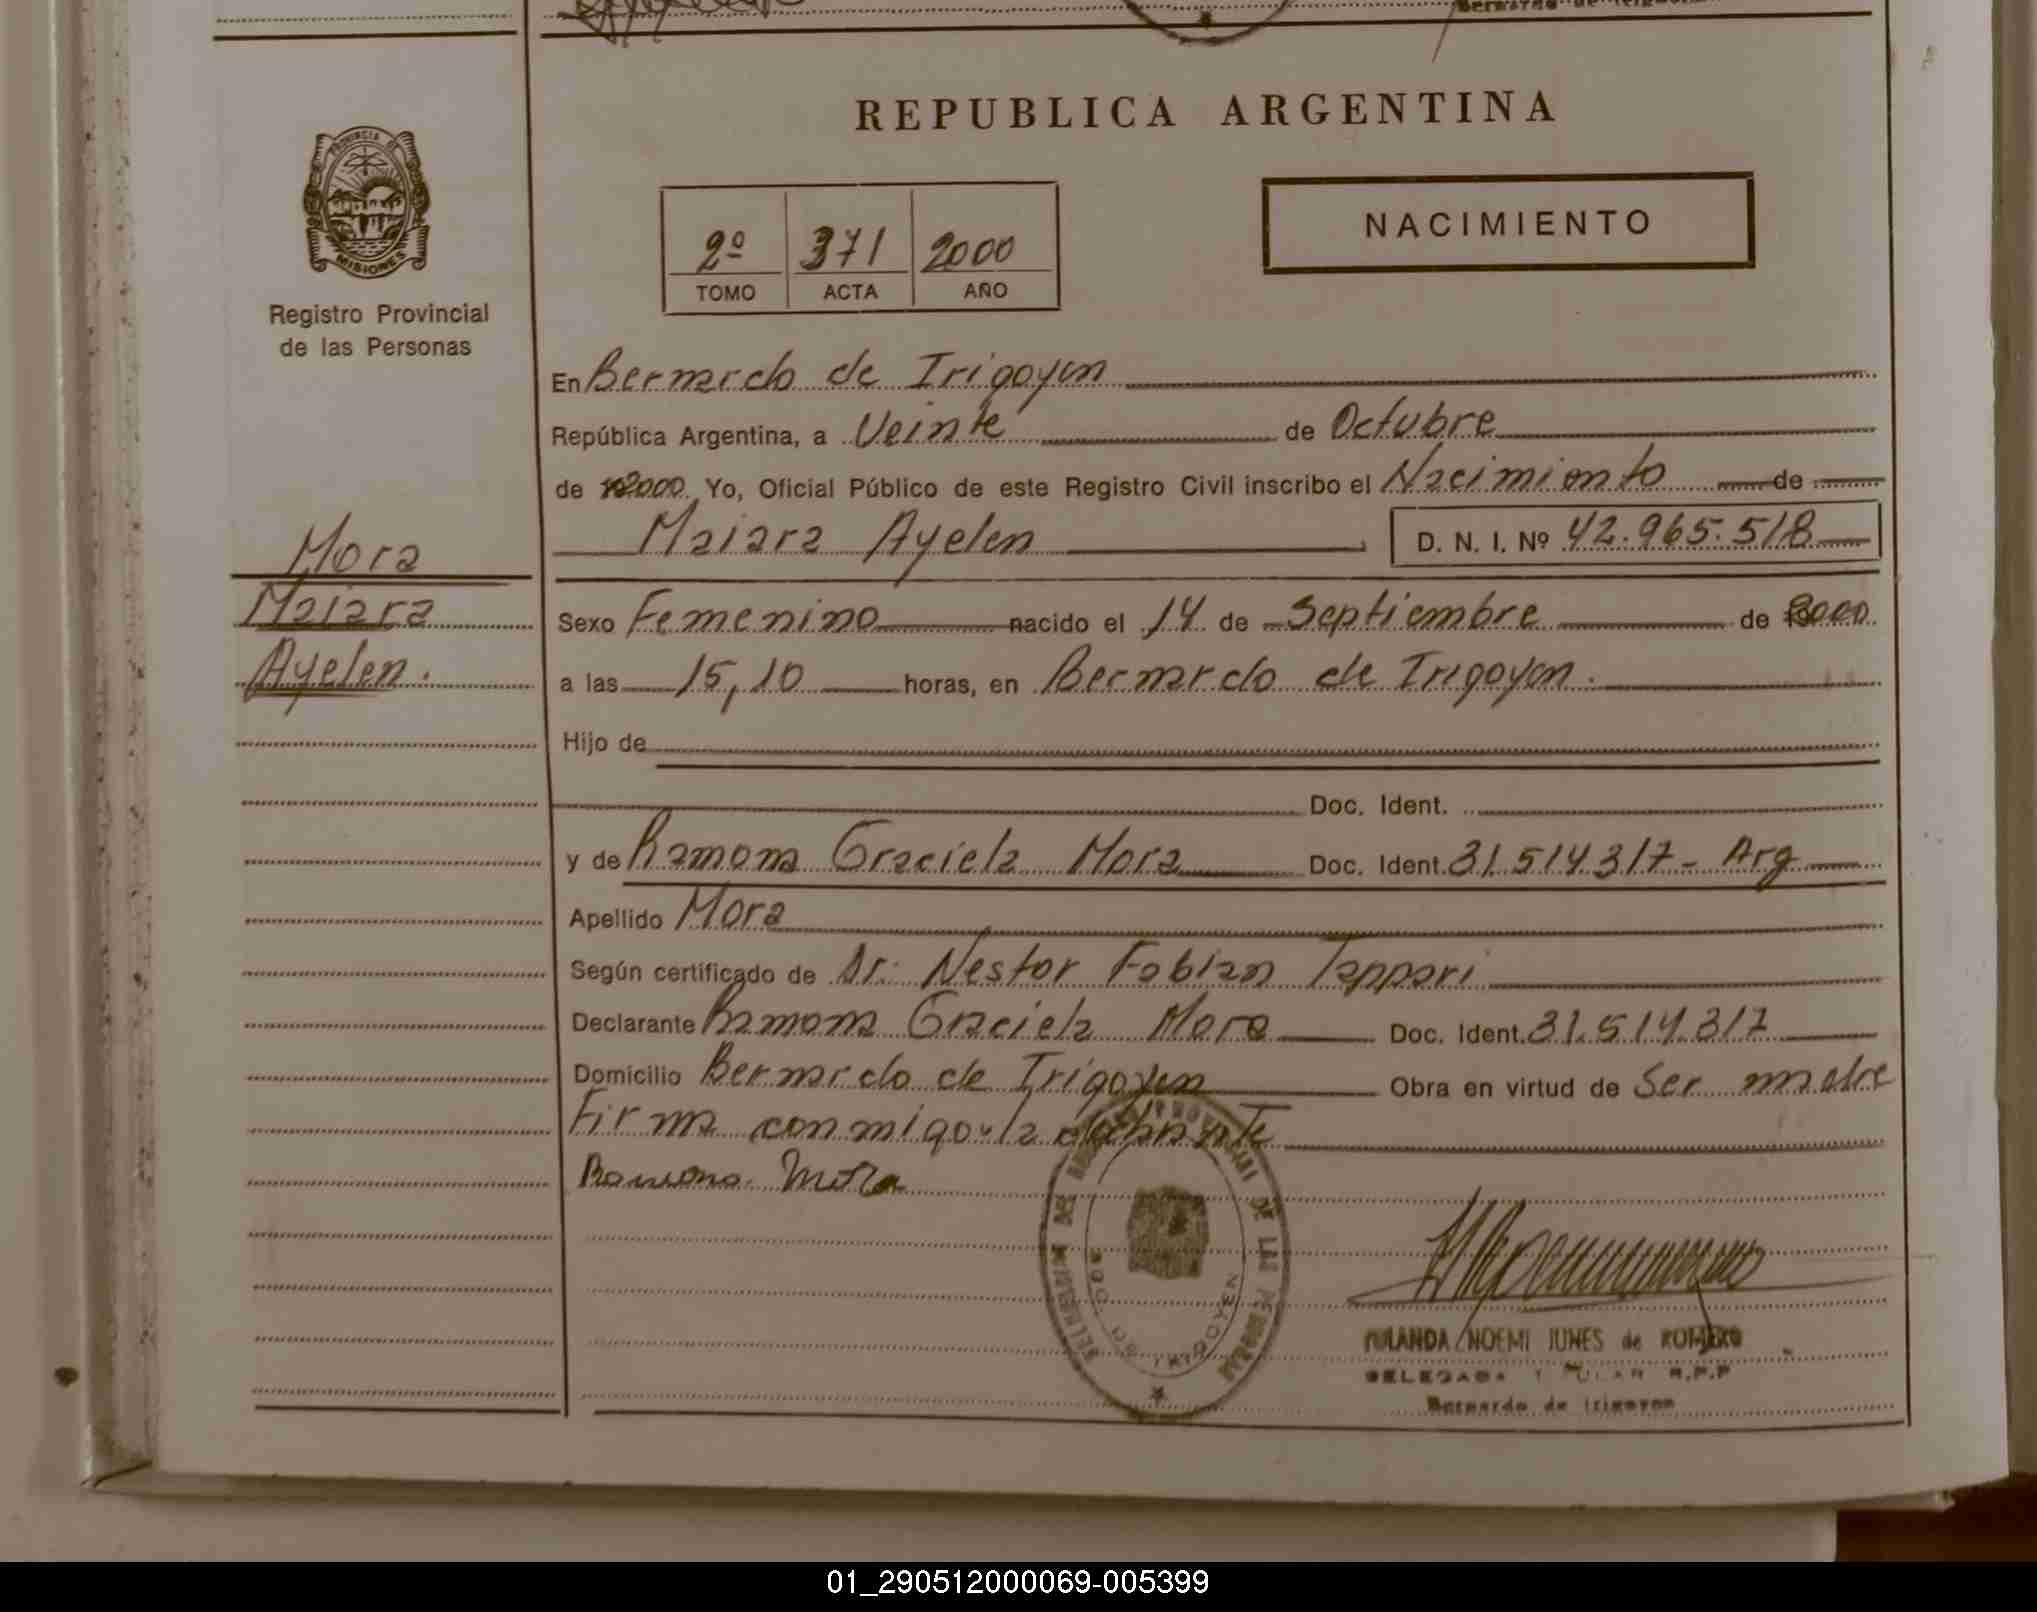 REPUBLICA ARGENTINA
PROVINCIA DE MISIONES
Registro Provincial
de las Personas
2º 371 2000
TOMO ACTA AÑO
NACIMIENTO
En Bernardo de Irigoyen
República Argentina, a Veinte de Octubre
de 2000 Yo, Oficial Público de este Registro Civil inscribo el Nacimiento de
Maiara Ayelen D. N. I. Nº 42.965.518
Mora
Maiara
Ayelen.
Sexo Femenino nacido el 14 de Septiembre de 2000
a las 15,10 horas, en Bernardo de Irigoyen.
Hijo de
Doc. Ident.
y de Ramona Graciela Mora Doc. Ident. 31.514.317- Arg
Apellido Mora
Según certificado de Dr: Nestor Fabian Tappari
Declarante Ramona Graciela Mora Doc. Ident. 31.514.317
Domicilio Bernardo de Irigoyen Obra en virtud de Ser madre
Firma conmigo la
Ramona Mora
DELEGACION DEL REGISTRO PROVINCIAL DE LAS PERSONAS
BDO. DE IRIGOYEN
YOLANDA NOEMI JUNES de ROMERO
DELEGADA TITULAR R.P.P
Bernardo de Irigoyen
01_290512000069-005399